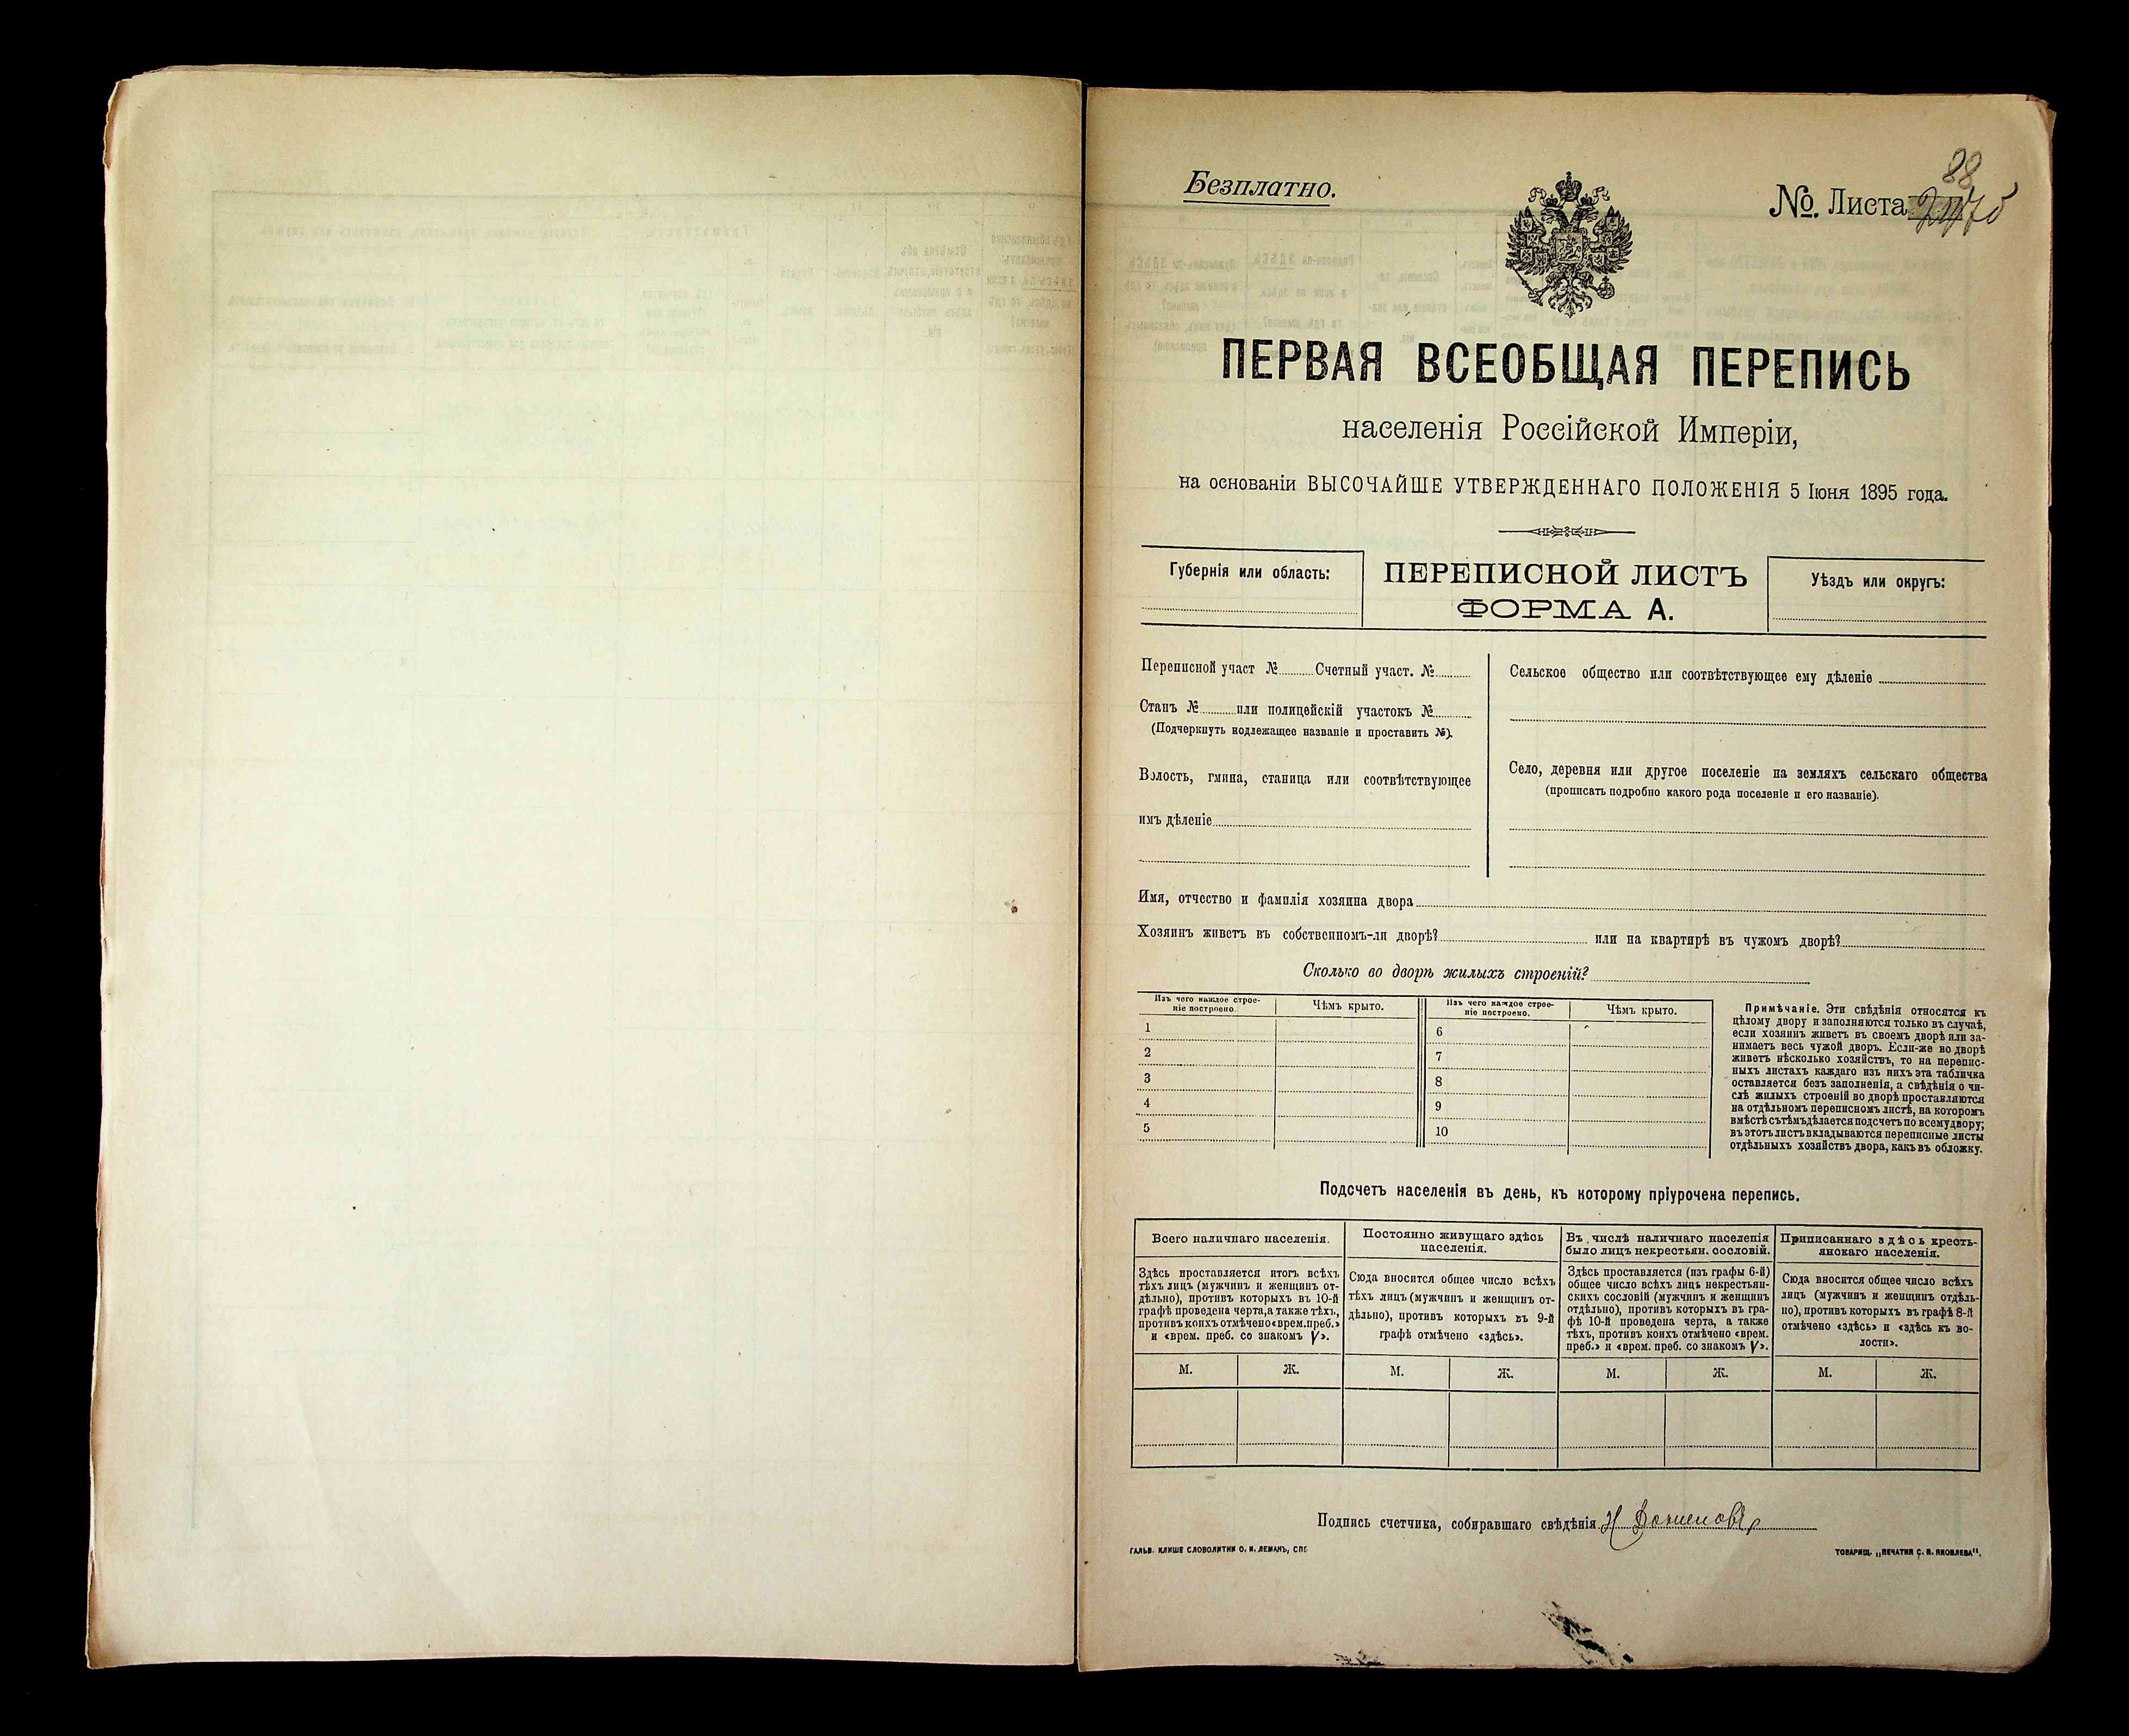 88
Безплатно.
№. Листа
ПЕРВАЯ ВСЕОБЩАЯ ПЕРЕПИСЬ
населенія Россійской Имперіи,
на основаніи ВЫСОЧАЙШЕ УТВЕРЖДЕННАГО ПОЛОЖЕНІЯ 5 Іюня 1895 года.
Губернія или область:
ПЕРЕПИСНОЙ ЛИСТЪ
ФОРМА А.
Уѣздъ или округъ:
Переписной участ № Счетный участ. №
Станъ № или полицейскій участокъ №
(Подчеркнуть нодлежащее названіе и проставить №).
Волость, гмина, станица или соотвѣтствующее
имъ дѣленіе
Сельское общество или соотвѣтствующее ему дѣленіе
Село, деревня или другое поселеніе на земляхъ сельскаго общества
(прописать подробно какого рода поселеніе и его названіе).
Имя, отчество и фамилія хозяина двора
Хозяинъ живетъ въ собственномъ-ли дворѣ? или на квартирѣ въ чужомъ дворѣ?
Сколько во дворѣ жилыхъ строеній?
Изъ чего каждое строе-
ніе построено.
Чѣмъ крыто.
1
2
3
4
5
Изъ чего каждое строе-
ніе построено.
Чѣмъ крыто.
6
7
8
9
10
Примѣчаніе. Эти свѣдѣнія относятся къ
цѣлому двору и заполняются только въ случаѣ,
если хозяинъ живетъ въ своемъ дворѣ или за-
нимаетъ весь чужой дворъ. Если-же во дворѣ
живетъ нѣсколько хозяйствъ, то на перепис-
ныхъ листахъ каждаго изъ нихъ эта табличка
оставляется безъ заполненія, а свѣдѣнія о чи-
слѣ жилыхъ строеній во дворѣ проставляются
на отдѣльномъ переписномъ листѣ, на которомъ
вмѣстѣ съ тѣмъ дѣлается подсчетъ по всему двору;
въ этотъ листъ вкладываются переписные листы
отдѣльныхъ хозяйствъ двора, какъ въ обложку.
Подсчетъ населенія въ день, къ которому пріурочена перепись.
Всего наличнаго населенія.
Здѣсь проставляется итогъ всѣхъ
тѣхъ лицъ (мужчинъ и женщинъ от-
дѣльно), противъ которыхъ въ 10-й
графѣ проведена черта, а также тѣхъ,
противъ коихъ отмѣчено «врем. преб.»
и «врем. преб. со знакомъ V».
М. Ж.
Постоянно живущаго здѣсь
населенія.
Сюда вносится общее число всѣхъ
тѣхъ лицъ (мужчинъ и женщинъ от-
дѣльно), противъ которыхъ въ 9-й
графѣ отмѣчено «здѣсь».
М. Ж.
Въ числѣ наличнаго населенія
было лицъ некрестьян. сословій.
Здѣсь проставляется (изъ графы 6-й)
общее число всѣхъ лицъ некрестьян-
скихъ сословій (мужчинъ и женщинъ
отдѣльно), противъ которыхъ въ гра-
фѣ 10-й проведена черта, а также
тѣхъ, противъ коихъ отмѣчено «врем.
преб.» и «врем. преб. со знакомъ V».
М. Ж.
Приписаннаго здѣсь кресть-
янскаго населенія.
Сюда вносится общее число всѣхъ
лицъ (мужчинъ и женщинъ отдѣль-
но), противъ которыхъ въ графѣ 8-й
отмѣчено «здѣсь» и «здѣсь къ во-
лости».
М. Ж.
Подпись счетчика, собиравшаго свѣдѣнія
ГАЛЬВ. КЛИШЕ СЛОВОЛИТНИ О. И. ЛЕМАНЪ, СПБ
ТОВАРИЩ. „ПЕЧАТНЯ С. П. ЯКОВЛЕВА“.